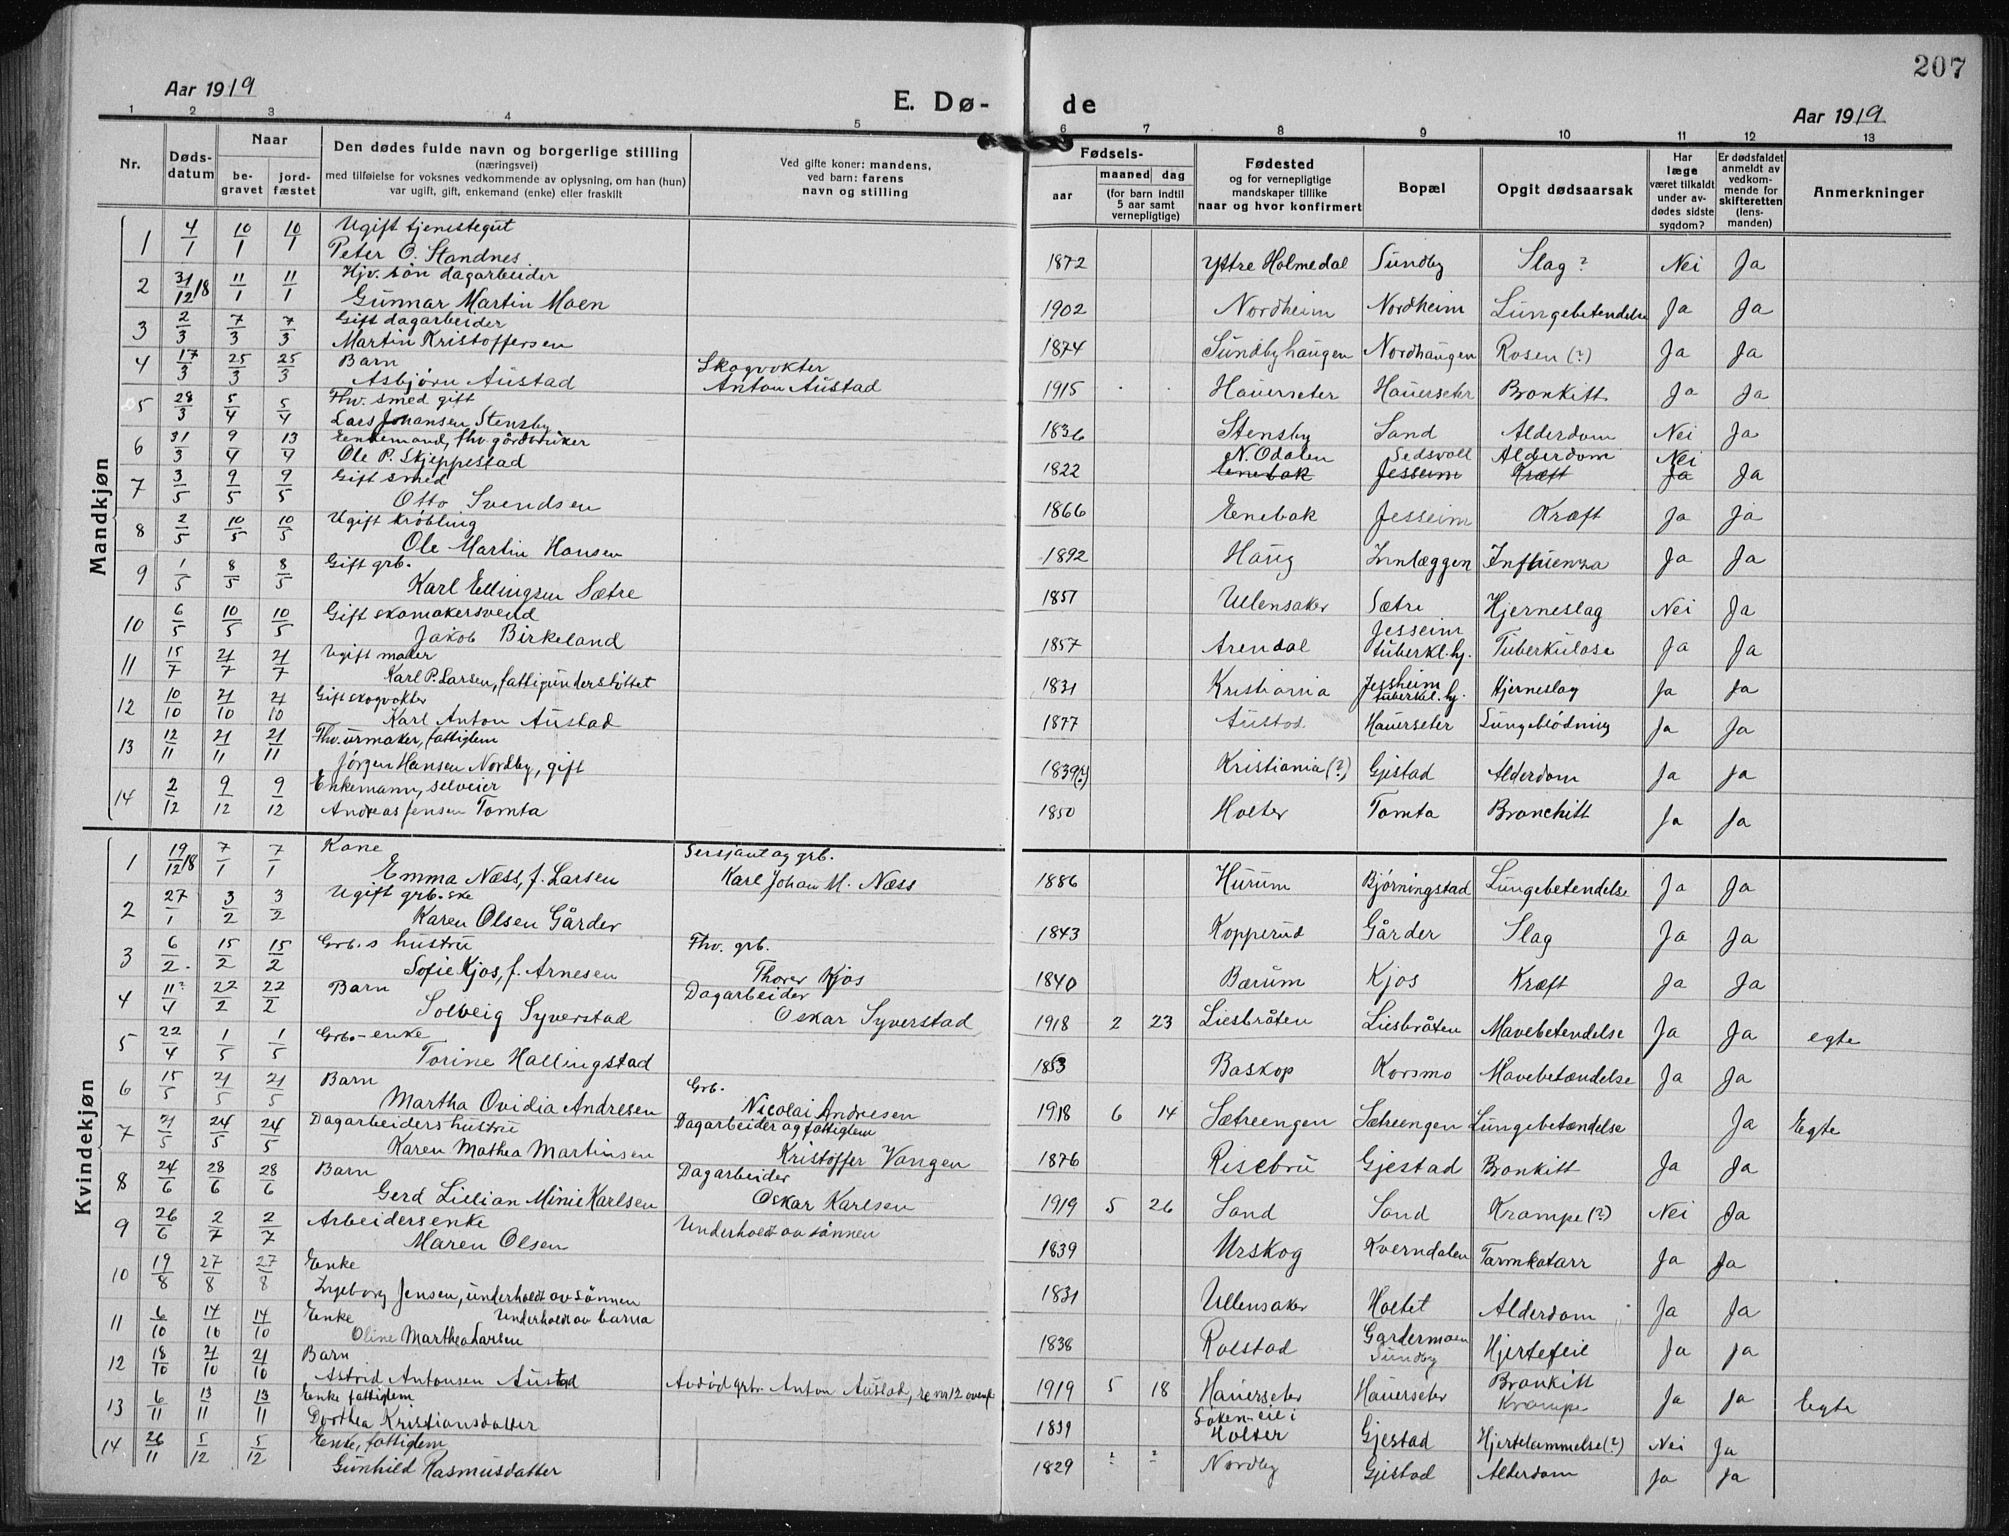 207
Aar 1919
E. Dø-
de
Aar 1919
1 2 3 4 5 6 7 8 9 10 11 12 13
Nr.
Døds-
datum
Naar
be-
gravet
jord-
fæstet
Den dødes fulde navn og borgerlige stilling
(næringsvei)
med tilføielse for voksnes vedkommende av oplysning, om han (hun)
var ugift, gift, enkemand (enke) eller fraskilt
Ved gifte koner: mandens,
ved barn: farens
navn og stilling
Fødsels-
aar
maaned dag
(for barn indtil
5 aar samt
vernepligtige)
Fødested
og for vernepligtige
mandskaper tillike
naar og hvor konfirmert
Bopæl
Opgit dødsaarsak
Har
læge
været tilkaldt
under av-
dødes sidste
sygdom?
Er dødsfaldet
anmeldt av
vedkom-
mende for
skifteretten
(lens-
manden)
Anmerkninger
Mandkjøn
1 4/1 10/1 10/1 Ugift tjenestegut
Peter O. Standnes 1872 Yttre Holmedal Sundby Slag? Nei Ja
2 31/12 18 11/1 11/1 Hjv. søn dagarbeider
Gunnar Martin Moen 1902 Nordheim Nordheim Lungebetendelse Ja Ja
3 2/3 7/3 7/3 Gift dagarbeider
Martin Kristoffersen 1874 Sundbyhaugen Nordhaugen Rosen (?) Ja Ja
4 17/3 25/3 25/3 Barn Skogvokter
Asbjørn Austad Anton Austad 1915 Hauerseter Hauerseter Bronkitt Ja Ja
5 28/3 5/4 5/4 Fhv. smed gift
Lars Johansen Stensby 1836 Stensby Sand Alderdom Nei Ja
6 31/3 9/4 13/4 Enkemand, fhv. gårdbruker N. Odalen Sedsvoll Alderdom Nei
Ole P. Skjeppestad 1822 Enebak Jesseim Kræft Ja Ja
7 3/5 9/5 9/5 Gift smed
Otto Svendsen 1866 Enebak Jesseim Kræft Ja Ja
8 2/5 10/5 10/5 Ugift krøbling
Ole Martin Hansen 1892 Haug Innlæggen Influensa Ja Ja
9 1/5 8/5 8/5 Gift grb.
Karl Ellingsen Sætre 1857 Ullensaker Sætre Hjerneslag Nei Ja
10 6/5 10/5 10/5 Gift skomakersvend Jesseim
Jakob Birkeland 1857 Arendal tuberkl. hj. Tuberkulose Ja Ja
11 15/7 21/7 21/7 Ugift maler Jessheim
Karl P. Larsen, fattigunderstøttet 1831 Kristiania tuberkl. hj. Hjerneslag Ja Ja
12 10/10 21/10 21/10 Gift skogvokter
Karl Anton Austad 1877 Austad Hauerseter Lungeblødning Ja Ja
13 12/11 21/11 21/11 Fhv. urmaker, fattiglem
Jørgen Hansen Nordby, gift 1839(?) Kristiania (?) Gjestad Alderdom Ja Ja
14 2/12 9/12 9/12 Enkemann, selveier
Andreas Jensen Tomta 1850 Holter Tomta Bronchitt Ja Ja
Kvindekjøn
1 19/12 18 7/1 7/1 Kone Sersjant og grb.
Emma Næss, f. Larsen Karl Johan M. Næss 1886 Hurum Bjørningstad Lungebetendelse Ja Ja
2 27/1 3/2 3/2 Ugift grb.-ske
Karen Olsen Gårder 1843 Kopperud Gårder Slag Ja Ja
3 6/2 15/2 15/2 Grb.s hustru Fhv. grb.
Sofie Kjos, f. Arnesen Thorer Kjos 1840 Bærum Kjos Kræft Ja Ja
4 11?/4 22/2 22/2 Barn Dagarbeider
Solveig Syverstad Oskar Syverstad 1918 2 23 Liesbråten Liesbråten Mavebetendelse Ja Ja egte
5 22/4 1/5 1/5 Grb.-enke
Torine Hallingstad 1853 Baskop Korsmo Mavebetændelse Ja Ja
6 15/5 21/5 21/5 Barn Grb.
Martha Ovidia Andresen Nicolai Andresen 1918 6 14 Sætreengen Sætreengen Lungebetændelse Ja Egte
7 21/5 24/5 24/5 Dagarbeiders hustru Dagarbeider og fattiglem
Karen Mathea Martinsen Kristoffer Vangen 1876 Risebru Gjestad Bronkitt Ja Ja
8 24/6 28/6 28/6 Barn Dagarbeider
Gerd Lillian Minie Karlsen Oskar Karlsen 1919 5 26 Sand Sand Krampe (?) Nei Ja
9 26/6 2/7 2/7 Arbeidersenke Underholdt av sønnen
Maren Olsen 1839 Urskog Kverndalen Tarmkatarr Ja Ja
10 19/8 27/8 27/8 Enke
Ingeborg Jensen, underholdt av sønnen 1831 Ullensaker Holtet Alderdom Ja Ja
11 6/10 14/10 14/10 Enke Underholdt av barna Gardermoen
Oline Marthea Larsen 1838 Rolstad Sundby Hjertefeil Ja Ja
12 18/10 21/10 21/10 Barn Bronkitt
Astrid Antonsen Austad Avdød grb. Anton Austad, se nr 12 ovenf. 1919 5 18 Hauerseter Hauerseter Krampe Ja Ja Egte
13 6/11 13/11 13/11 Enke fattiglem
Dorthea Kristiansdatter 1839 Holter Gjestad Hjertelammelse (?) Nei Ja
14 26/11 5/12 5/12 Enke, fattiglem
Gunhild Rasmusdatter 1829 ? ? Nordby Gjestad Alderdom Ja Ja